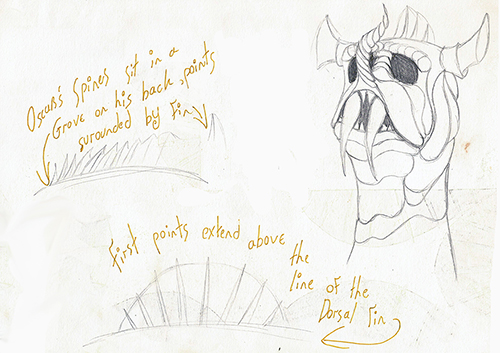 Oscar's Spines sit in a
Grove on his back, points
surounded by Fin
First points extend above
the
line of the
Dorsal Fin